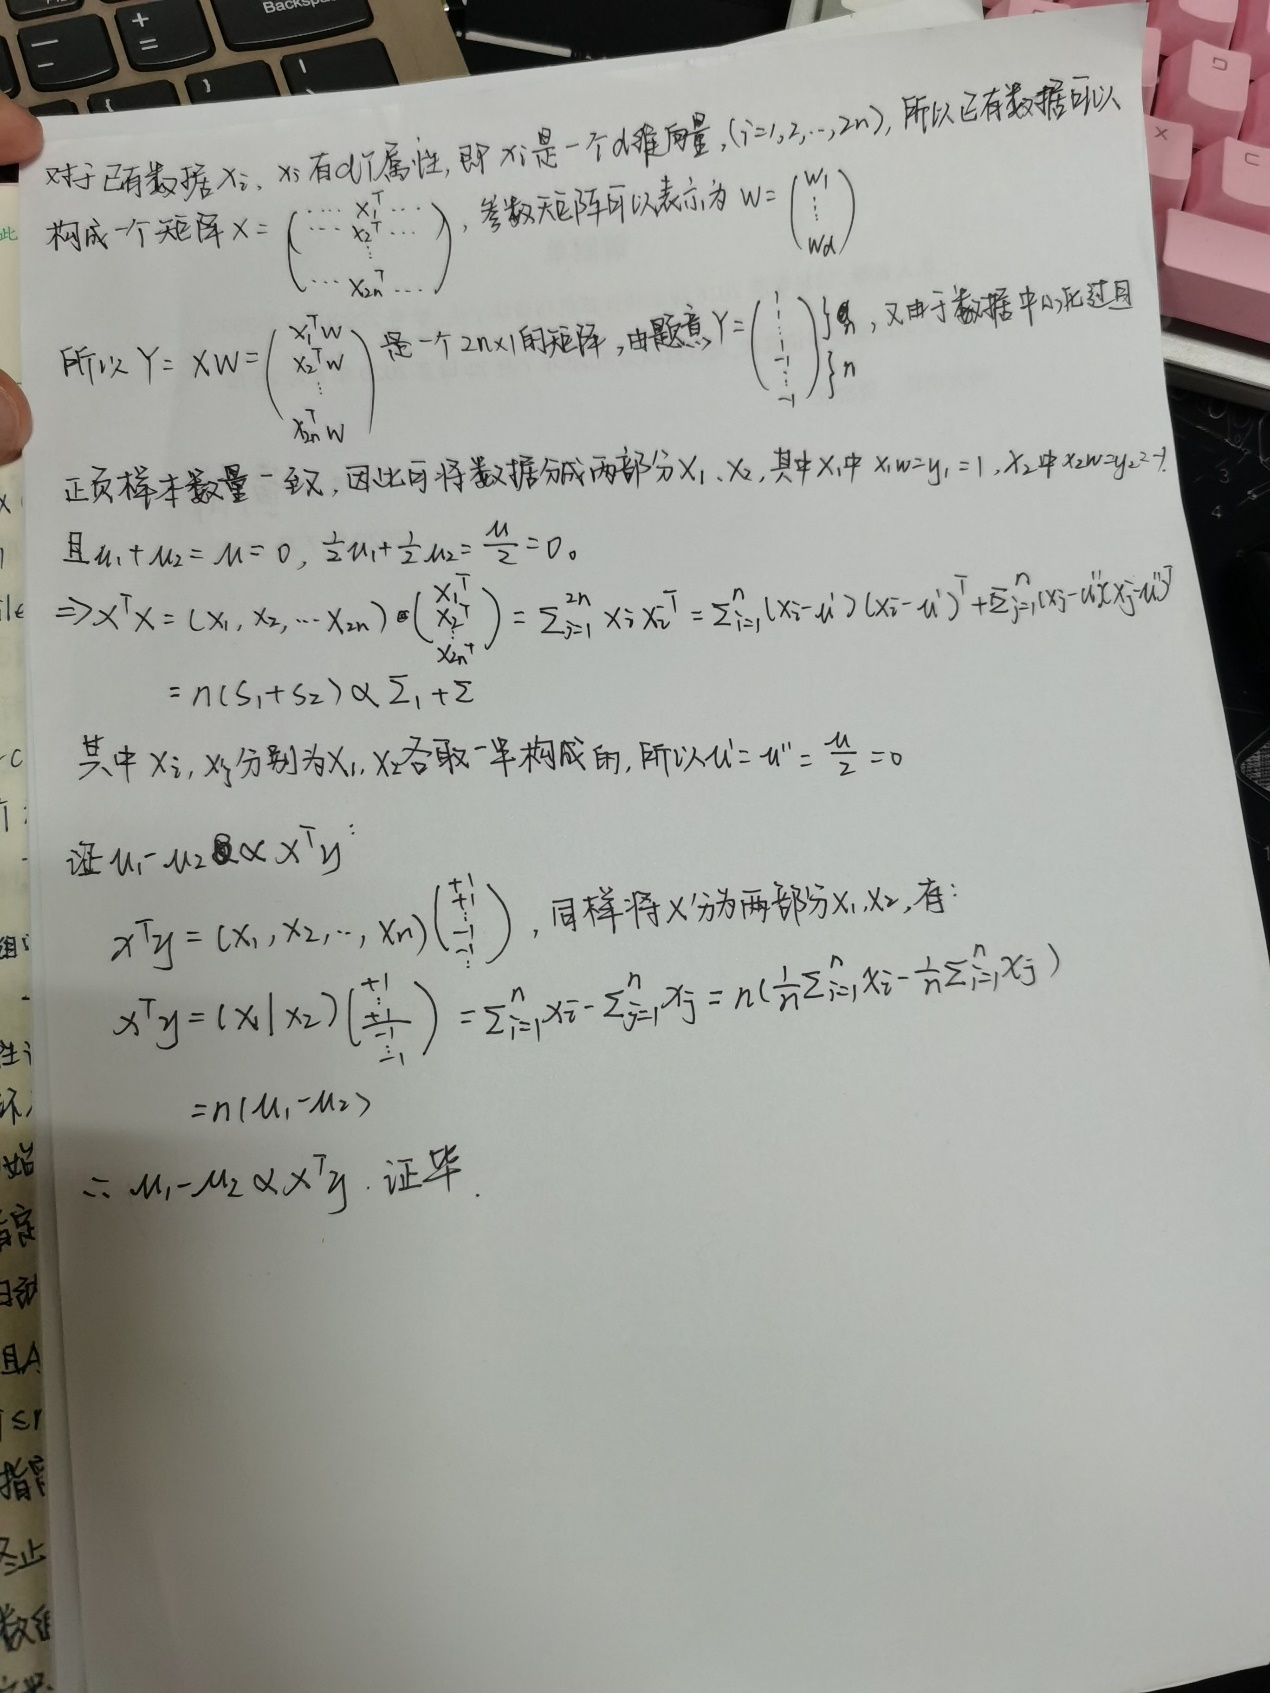 对于已有数据xᵢ, xᵢ有d个属性,即xᵢ是一个d维向量,(i=1,2,...,2n),所以已有数据可以
构成一个矩阵X = (⋯ x₁ᵀ ⋯; ⋯ x₂ᵀ ⋯; ⋮; ⋯ x₂ₙᵀ ⋯),参数矩阵可以表示为 W = (w₁; ⋮; wd)
所以 Y = XW = (x₁ᵀw; x₂ᵀw; ⋮; x₂ₙᵀw) 是一个2n×1的矩阵,由题意,Y = (1; ⋮; 1; -1; ⋮; -1) }n }n,又由于数据中心化过且
正负样本数量一致,因此可将数据分成两部分X₁、X₂,其中X₁中 x₁w=y₁=1,X₂中x₂w=y₂=-1.
且u₁+u₂=u=0, ½u₁+½u₂=u/2=0。
⇒XᵀX = (x₁, x₂, ⋯ x₂ₙ) (x₁ᵀ; x₂ᵀ; ⋮; x₂ₙᵀ) = Σ²ⁿᵢ₌₁ xᵢxᵢᵀ = Σⁿᵢ₌₁(xᵢ-u')(xᵢ-u')ᵀ+Σⁿⱼ₌₁(xⱼ-u'')(xⱼ-u'')ᵀ
= n(S₁+S₂) ∝ Σ₁+Σ
其中 xᵢ, xⱼ分别为X₁, X₂各取一半构成的,所以u'=u''=u/2=0
证u₁-u₂ ∝ xᵀy:
xᵀy = (x₁, x₂, .., xₙ)(+1; +1; ⋮; -1; -1; ⋮),同样将X分为两部分X₁,X₂,有:
xᵀy = (x₁|x₂)(+1; ⋮; +1; -1; ⋮; -1) = Σⁿᵢ₌₁xᵢ - Σⁿⱼ₌₁xⱼ = n(1/n Σⁿᵢ₌₁xᵢ - 1/n Σⁿᵢ₌₁xⱼ)
=n(u₁-u₂)
∴ u₁-u₂ ∝ xᵀy. 证毕.
Backsp